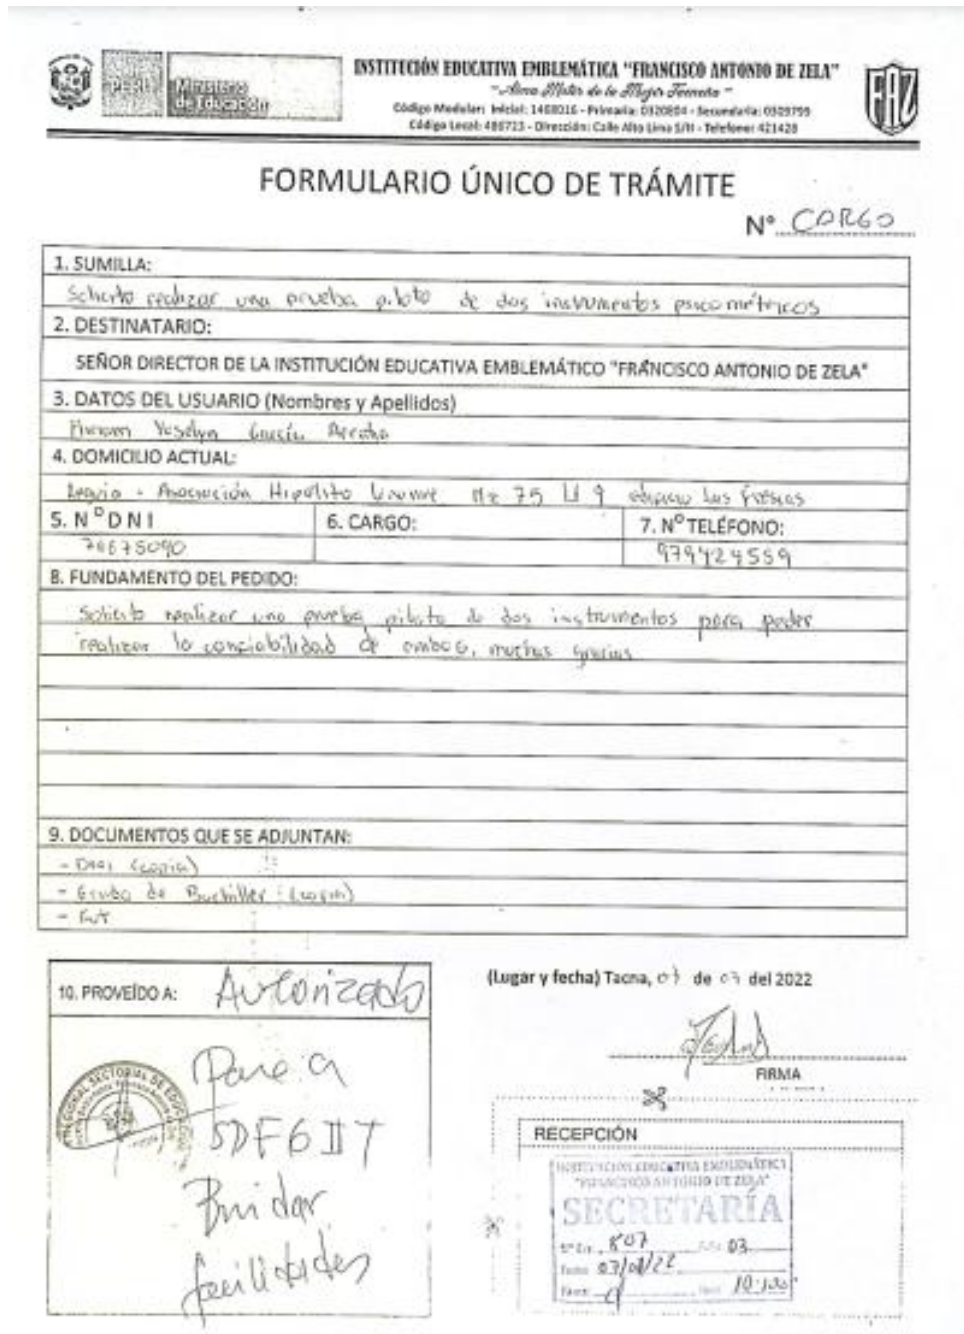 PERÚ
Ministerio
de Educación
INSTITUCIÓN EDUCATIVA EMBLEMÁTICA "FRANCISCO ANTONIO DE ZELA"
"Alma Mater de la Mujer Tacneña"
Código Modular: Inicial: 1468016 - Primaria: 0320804 - Secundaria: 0309799
Código Local: 486723 - Dirección: Calle Alto Lima S/N - Telefono: 421428
FAZ
FORMULARIO ÚNICO DE TRÁMITE
N° CARGO
1. SUMILLA:
Solicito realizar una prueba piloto de dos instrumentos psicométricos
2. DESTINATARIO:
SEÑOR DIRECTOR DE LA INSTITUCIÓN EDUCATIVA EMBLEMÁTICO "FRANCISCO ANTONIO DE ZELA"
3. DATOS DEL USUARIO (Nombres y Apellidos)
Yoselyn García
4. DOMICILIO ACTUAL:
Leguía - Asociación Hipólito Unanue Mz 75 Lt 9 Las Fresias
5. N° D N I
6. CARGO:
7. N° TELÉFONO:
70675090
979424559
8. FUNDAMENTO DEL PEDIDO:
Solicito realizar una prueba piloto de dos instrumentos para poder
realizar la confiabilidad de ambos, muchas gracias
9. DOCUMENTOS QUE SE ADJUNTAN:
- DNI (copia)
- Grado de Bachiller (copia)
- FUT
10. PROVEÍDO A: Autorizado
Pase a
SDFGIIT
Brindar
facilidades
(Lugar y fecha) Tacna, 07 de 07 del 2022
FIRMA
RECEPCIÓN
INSTITUCIÓN EDUCATIVA EMBLEMÁTICA
"FRANCISCO ANTONIO DE ZELA"
SECRETARÍA
807 03